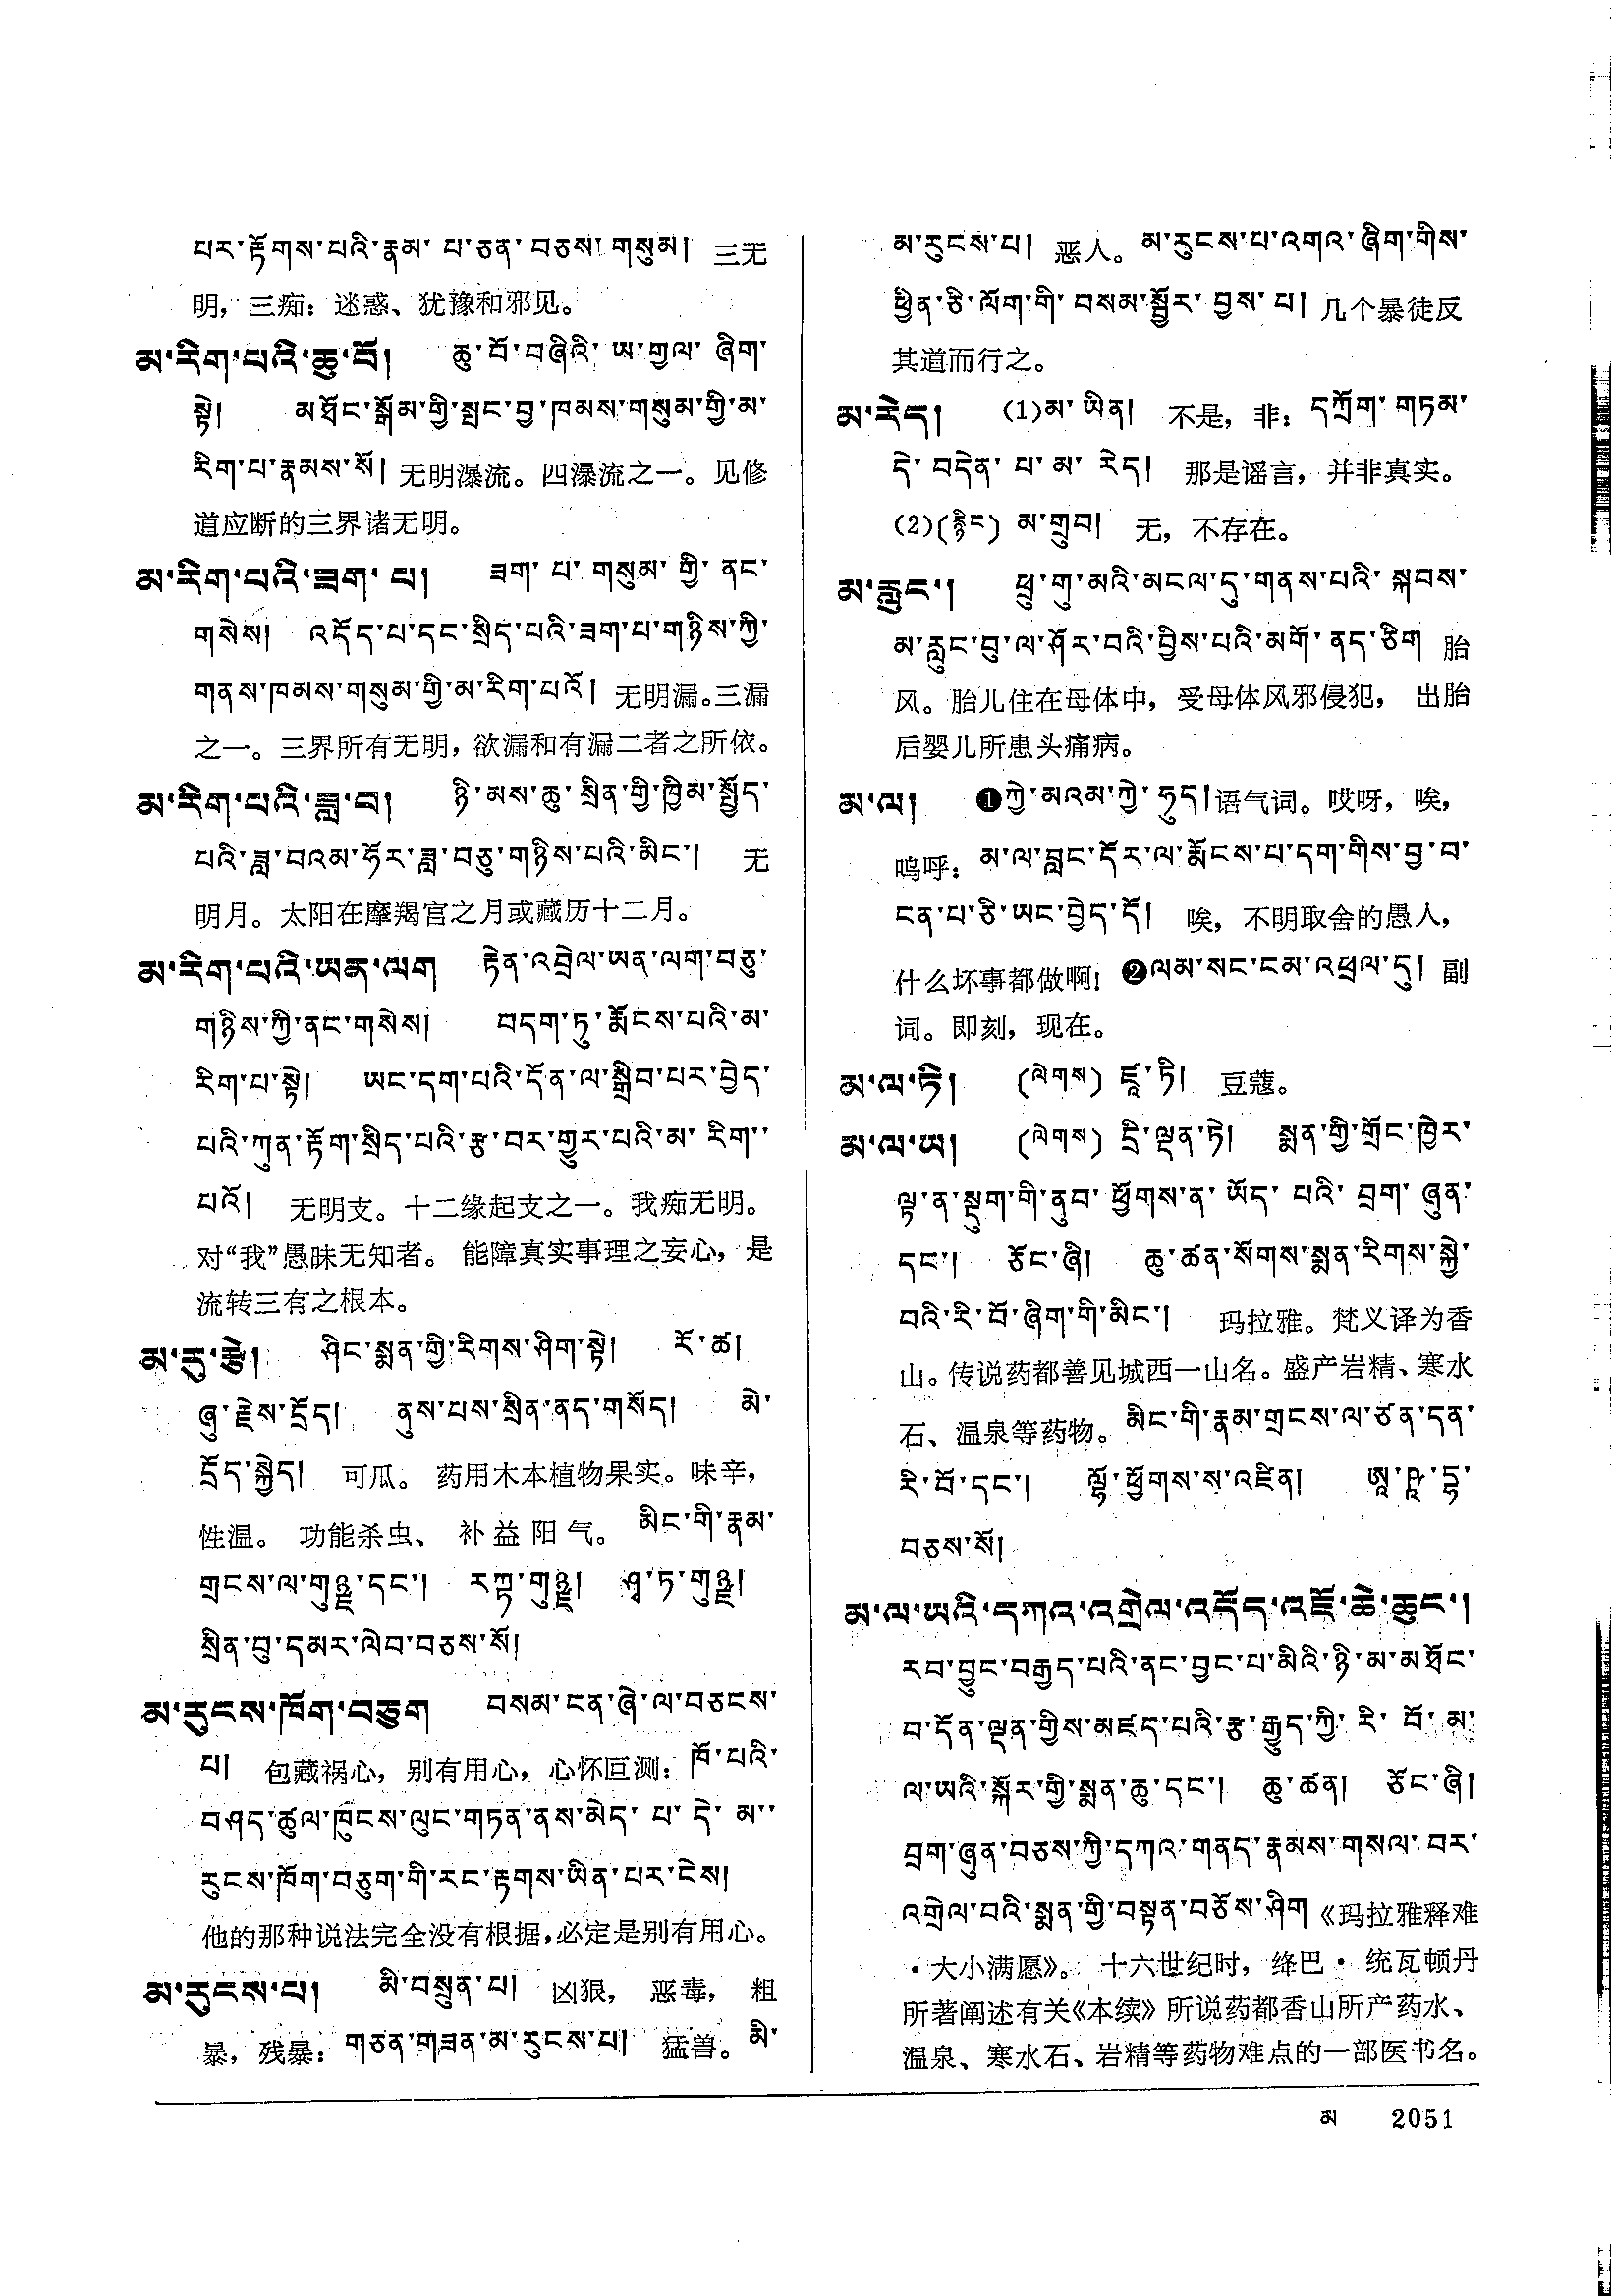 པར་རྟོགས་པའི་རྣམ་ པ་ཅན་ བཅས་ གསུམ། 三无
明，三痴：迷惑、犹豫和邪见。
མ་རིག་པའི་ཆུ་བོ། ཆུ་བོ་བཞིའི་ ཨ་གྱལ་ ཞིག་
སྟེ། མཐོང་སྒོམ་གྱི་སྤང་བྱ་ཁམས་གསུམ་གྱི་མ་
རིག་པ་རྣམས་སོ། 无明瀑流。四瀑流之一。见修
道应断的三界诸无明。
མ་རིག་པའི་ཟག་ པ། ཟག་ པ་ གསུམ་ གྱི་ ནང་
གསེས། འདོད་པ་དང་སྲིད་པའི་ཟག་པ་གཉིས་ཀྱི་
གནས་ཁམས་གསུམ་གྱི་མ་རིག་པའོ། 无明漏。三漏
之一。三界所有无明，欲漏和有漏二者之所依。
མ་རིག་པའི་ཟླ་བ། ཉི་མས་ཆུ་ སྲིན་གྱི་ཁྱིམ་སྤྱོད་
པའི་ཟླ་བའམ་ཧོར་ཟླ་བཅུ་གཉིས་པའི་མིང་། 无
明月。太阳在摩羯宫之月或藏历十二月。
མ་རིག་པའི་ཡན་ལག རྟེན་འབྲེལ་ཡན་ལག་བཅུ་
གཉིས་ཀྱི་ནང་གསེས། བདག་ཏུ་རྨོངས་པའི་མ་
རིག་པ་སྟེ། ཡང་དག་པའི་དོན་ལ་སྒྲིབ་པར་བྱེད་
པའི་ཀུན་རྟོག་སྲིད་པའི་རྩ་བར་གྱུར་པའི་མ་ རིག་་
པའོ། 无明支。十二缘起支之一。我痴无明。
对“我”愚昧无知者。 能障真实事理之妄心，是
流转三有之根本。
མ་རུ་རྩེ། ཤིང་སྨན་གྱི་རིགས་ཤིག་སྟེ། རོ་ཚ།
ཞུ་རྗེས་དྲོད། ནུས་པས་སྲིན་ནད་གསོད། མེ་
དྲོད་སྐྱེད། 可瓜。 药用木本植物果实。味辛，
性温。 功能杀虫、 补益阳气。 མིང་གི་རྣམ་
གྲངས་ལ་གུཉྫ་དང་། རཀྟ་གུཉྫ། ཤྭ་ཏ་གུཉྫ།
སྲིན་བུ་དམར་ལེབ་བཅས་སོ།
མ་རུངས་ཁོག་བཅུག བསམ་ངན་ཞེ་ལ་བཅངས་
པ། 包藏祸心，别有用心，心怀叵测：ཁོ་པའི་
བཤད་ཚུལ་ཁུངས་ལུང་གཏན་ནས་མེད་ པ་ དེ་ མ་་
རུངས་ཁོག་བཅུག་གི་རང་རྟགས་ཡིན་པར་ངེས།
他的那种说法完全没有根据，必定是别有用心。
མ་རུངས་པ། མི་བསྲུན་པ། 凶狠， 恶毒， 粗
暴，残暴：གཅན་གཟན་མ་རུངས་པ། 猛兽。མི་
མ་རུངས་པ། 恶人。མ་རུངས་པ་འགའ་ཞིག་གིས་
ཕྱིན་ཅི་ལོག་གི་ བསམ་སྦྱོར་ བྱས་ པ། 几个暴徒反
其道而行之。
མ་རེད། (1)མ་ ཡིན། 不是，非：དཀྲོག་ གཏམ་
དེ་ བདེན་ པ་ མ་ རེད། 那是谣言，并非真实。
(2)(རྙིང) མ་གྲུབ། 无，不存在。
མ་རླུང་། ཕྲུ་གུ་མའི་མངལ་དུ་གནས་པའི་ སྐབས་
མ་རླུང་བུ་ལ་ཤོར་བའི་བྱིས་པའི་མགོ་ ནད་ཅིག 胎
风。胎儿住在母体中，受母体风邪侵犯， 出胎
后婴儿所患头痛病。
མ་ལ། ❶ཀྱེ་མའམ་ཀྱེ་ཧུད།语气词。哎呀，唉，
呜呼：མ་ལ་བླང་དོར་ལ་རྨོངས་པ་དག་གིས་བྱ་བ་
ངན་པ་ཅི་ཡང་བྱེད་དོ། 唉，不明取舍的愚人，
什么坏事都做啊！❷ལམ་སང་ངམ་འཕྲལ་དུ། 副
词。即刻，现在。
མ་ལ་ཏི། (ལེགས) ཛཱ་ཏི། 豆蔻。
མ་ལ་ཡ། (ལེགས) དྲི་ལྡན་ཏེ། སྨན་གྱི་གྲོང་ཁྱེར་
ལྟ་ན་སྡུག་གི་ནུབ་ ཕྱོགས་ན་ ཡོད་ པའི་ བྲག་ ཞུན་
དང་། ཅོང་ཞི། ཆུ་ཚན་སོགས་སྨན་རིགས་སྐྱེ་
བའི་རི་བོ་ཞིག་གི་མིང་། 玛拉雅。梵义译为香
山。传说药都善见城西一山名。盛产岩精、寒水
石、温泉等药物。མིང་གི་རྣམ་གྲངས་ལ་ཙན་དན་
རི་བོ་དང་། ལྷོ་ཕྱོགས་ས་འཛིན།
བཅས་སོ།
མ་ལ་ཡའི་དཀའ་འགྲེལ་འདོད་འཇོ་ཆེ་ཆུང་།
རབ་བྱུང་བརྒྱད་པའི་ནང་བྱང་པ་མིའི་ཉི་མ་མཐོང་
བ་དོན་ལྡན་གྱིས་མཛད་པའི་རྩ་རྒྱུད་ཀྱི་ རི་ བོ་ མ་
ལ་ཡའི་སྐོར་གྱི་སྨན་ཆུ་དང་། ཆུ་ཚན། ཅོང་ཞི།
བྲག་ཞུན་བཅས་ཀྱི་དཀའ་གནད་རྣམས་གསལ་བར་
འགྲེལ་བའི་སྨན་གྱི་བསྟན་བཅོས་ཤིག《玛拉雅释难
·大小满愿》。 十六世纪时，绛巴·统瓦顿丹
所著阐述有关《本续》所说药都香山所产药水、
温泉、寒水石、岩精等药物难点的一部医书名。
མ 2051